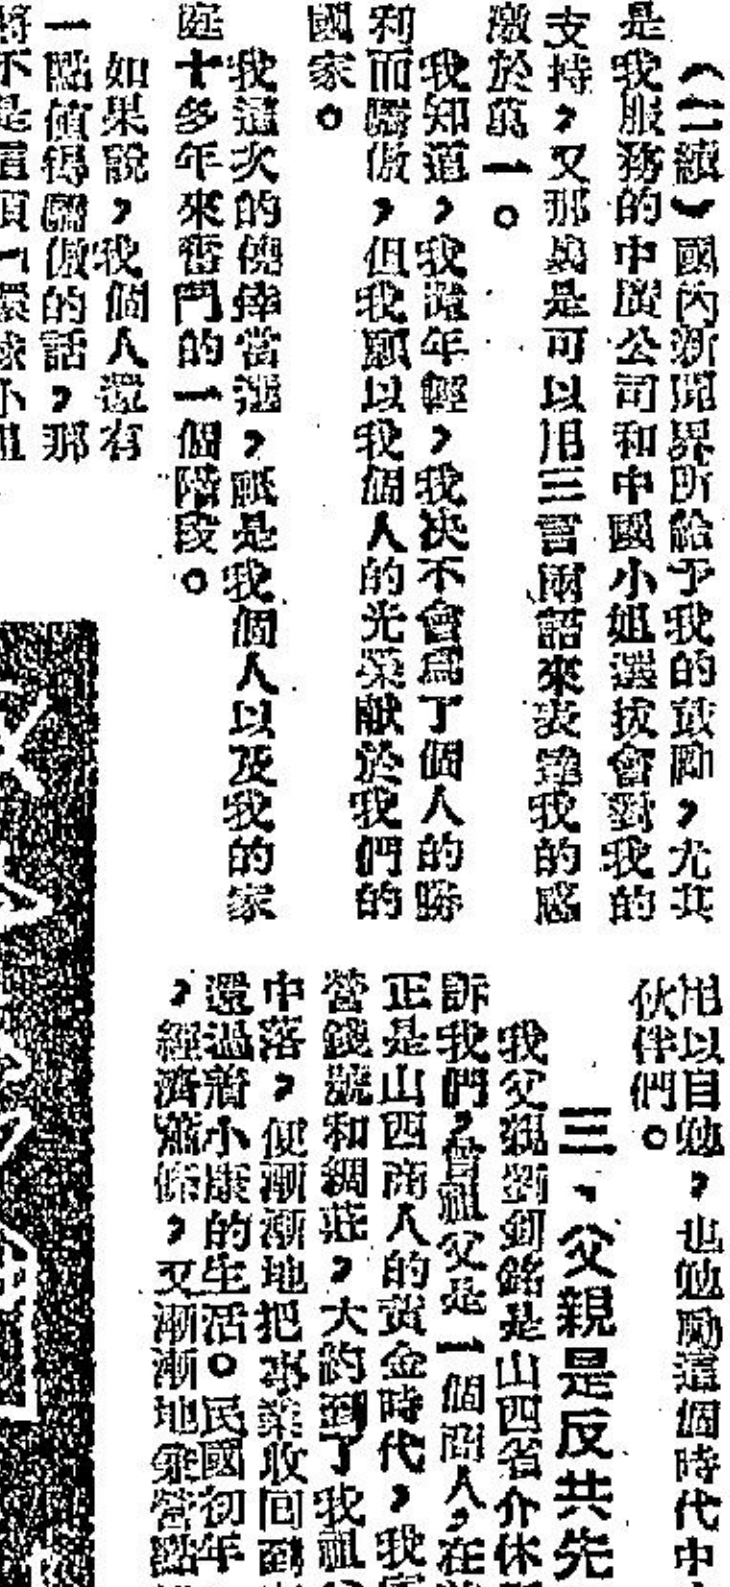 （二續）國內新聞界所給予我的鼓勵，尤其
是我服務的中廣公司和中國小姐選拔會對我的
支持，又那裏是可以用三言兩語來表達我的感
激於萬一。
我知道，我還年輕，我決不會爲了個人的勝
利而驕傲，但我願以我個人的光榮獻於我們的
國家。
我這次的僥倖當選，祇是我個人以及我的家
庭十多年來奮鬥的一個階段。
如果說，我個人還有
一點值得驕傲的話，那
將不是這項「環球小姐
用以自勉，也勉勵這個時代中
伙伴們。
三、父親是反共先
我父親劉釗銘是山西省介休
訴我們，曾祖父是一個商人，在
正是山西商人的黃金時代，我
營錢號和綢莊，大約到了我祖
中落，便漸漸地把事業收回
還過着小康的生活。民國初年
，經濟蕭條，又漸漸地兼營